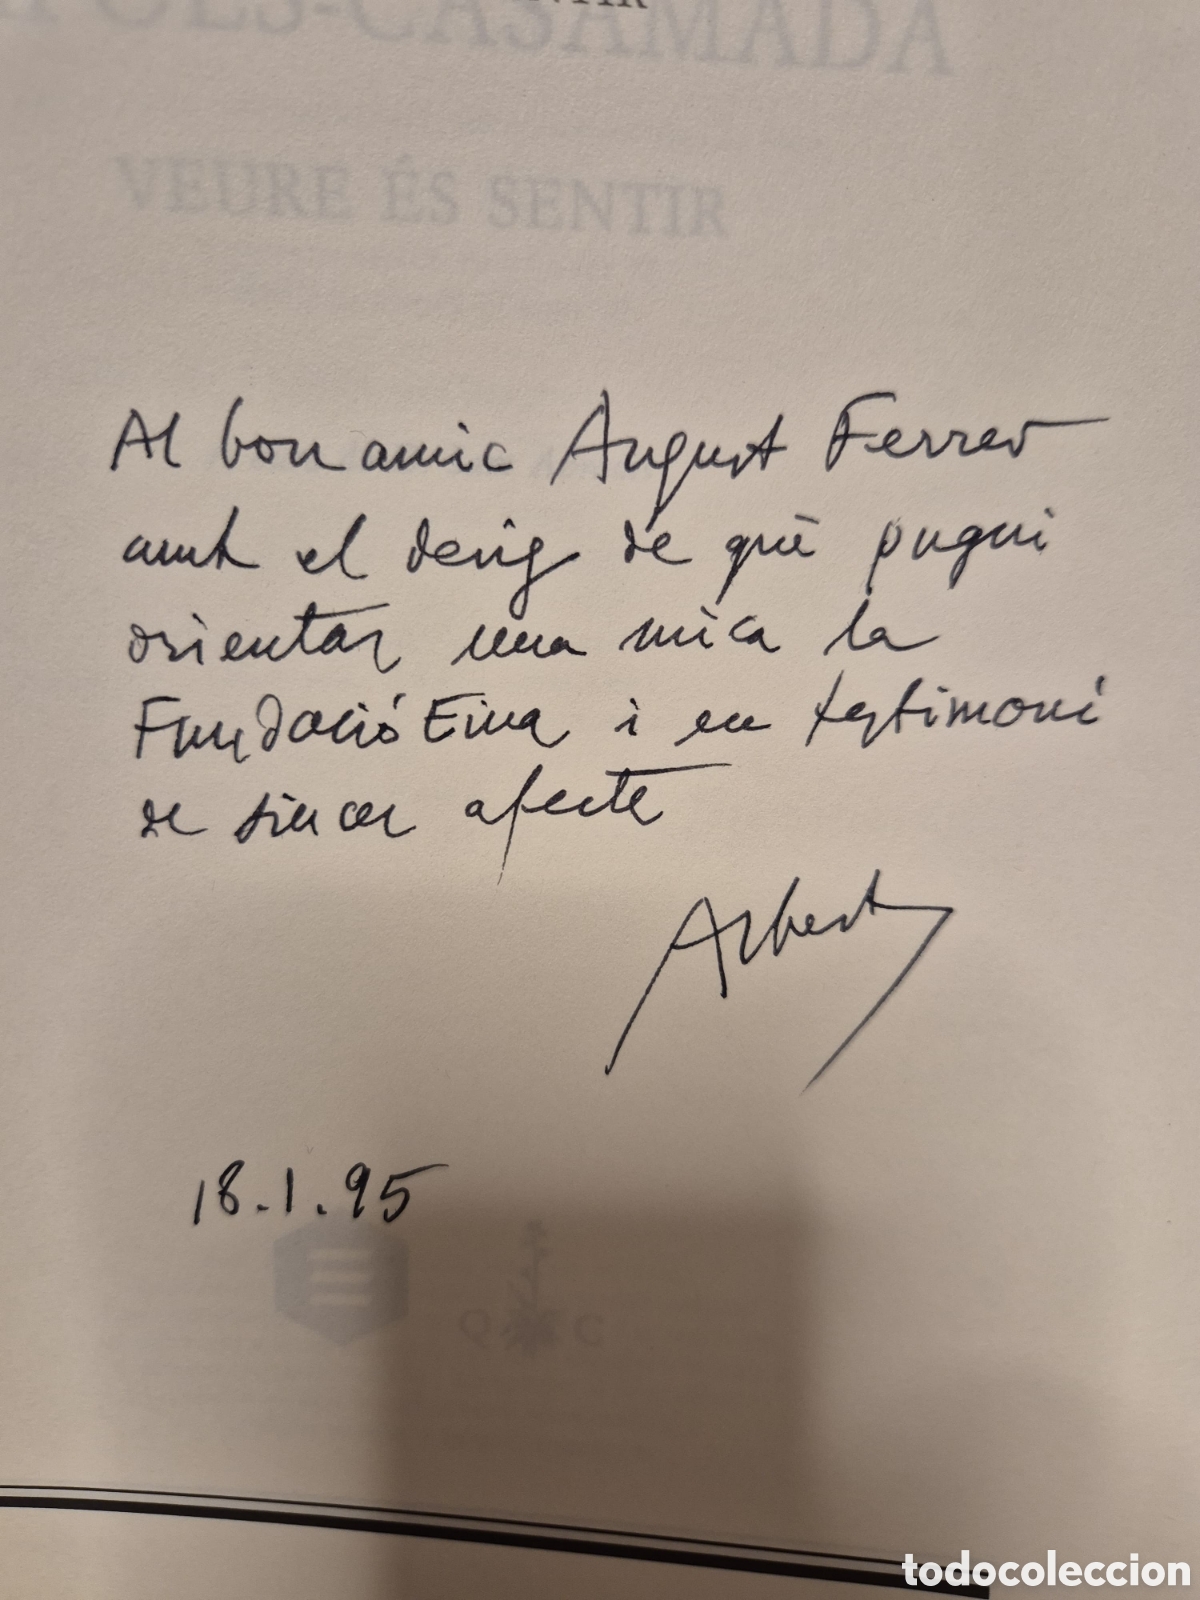 CASAMADA
VEURE ÉS SENTIR
Al bon amic August Ferrer
amb el desig de què pugui
orientar una mica la
Fundació Eina i en testimoni
de sincer afecte
Albert
18.1.95
Q C
todocoleccion